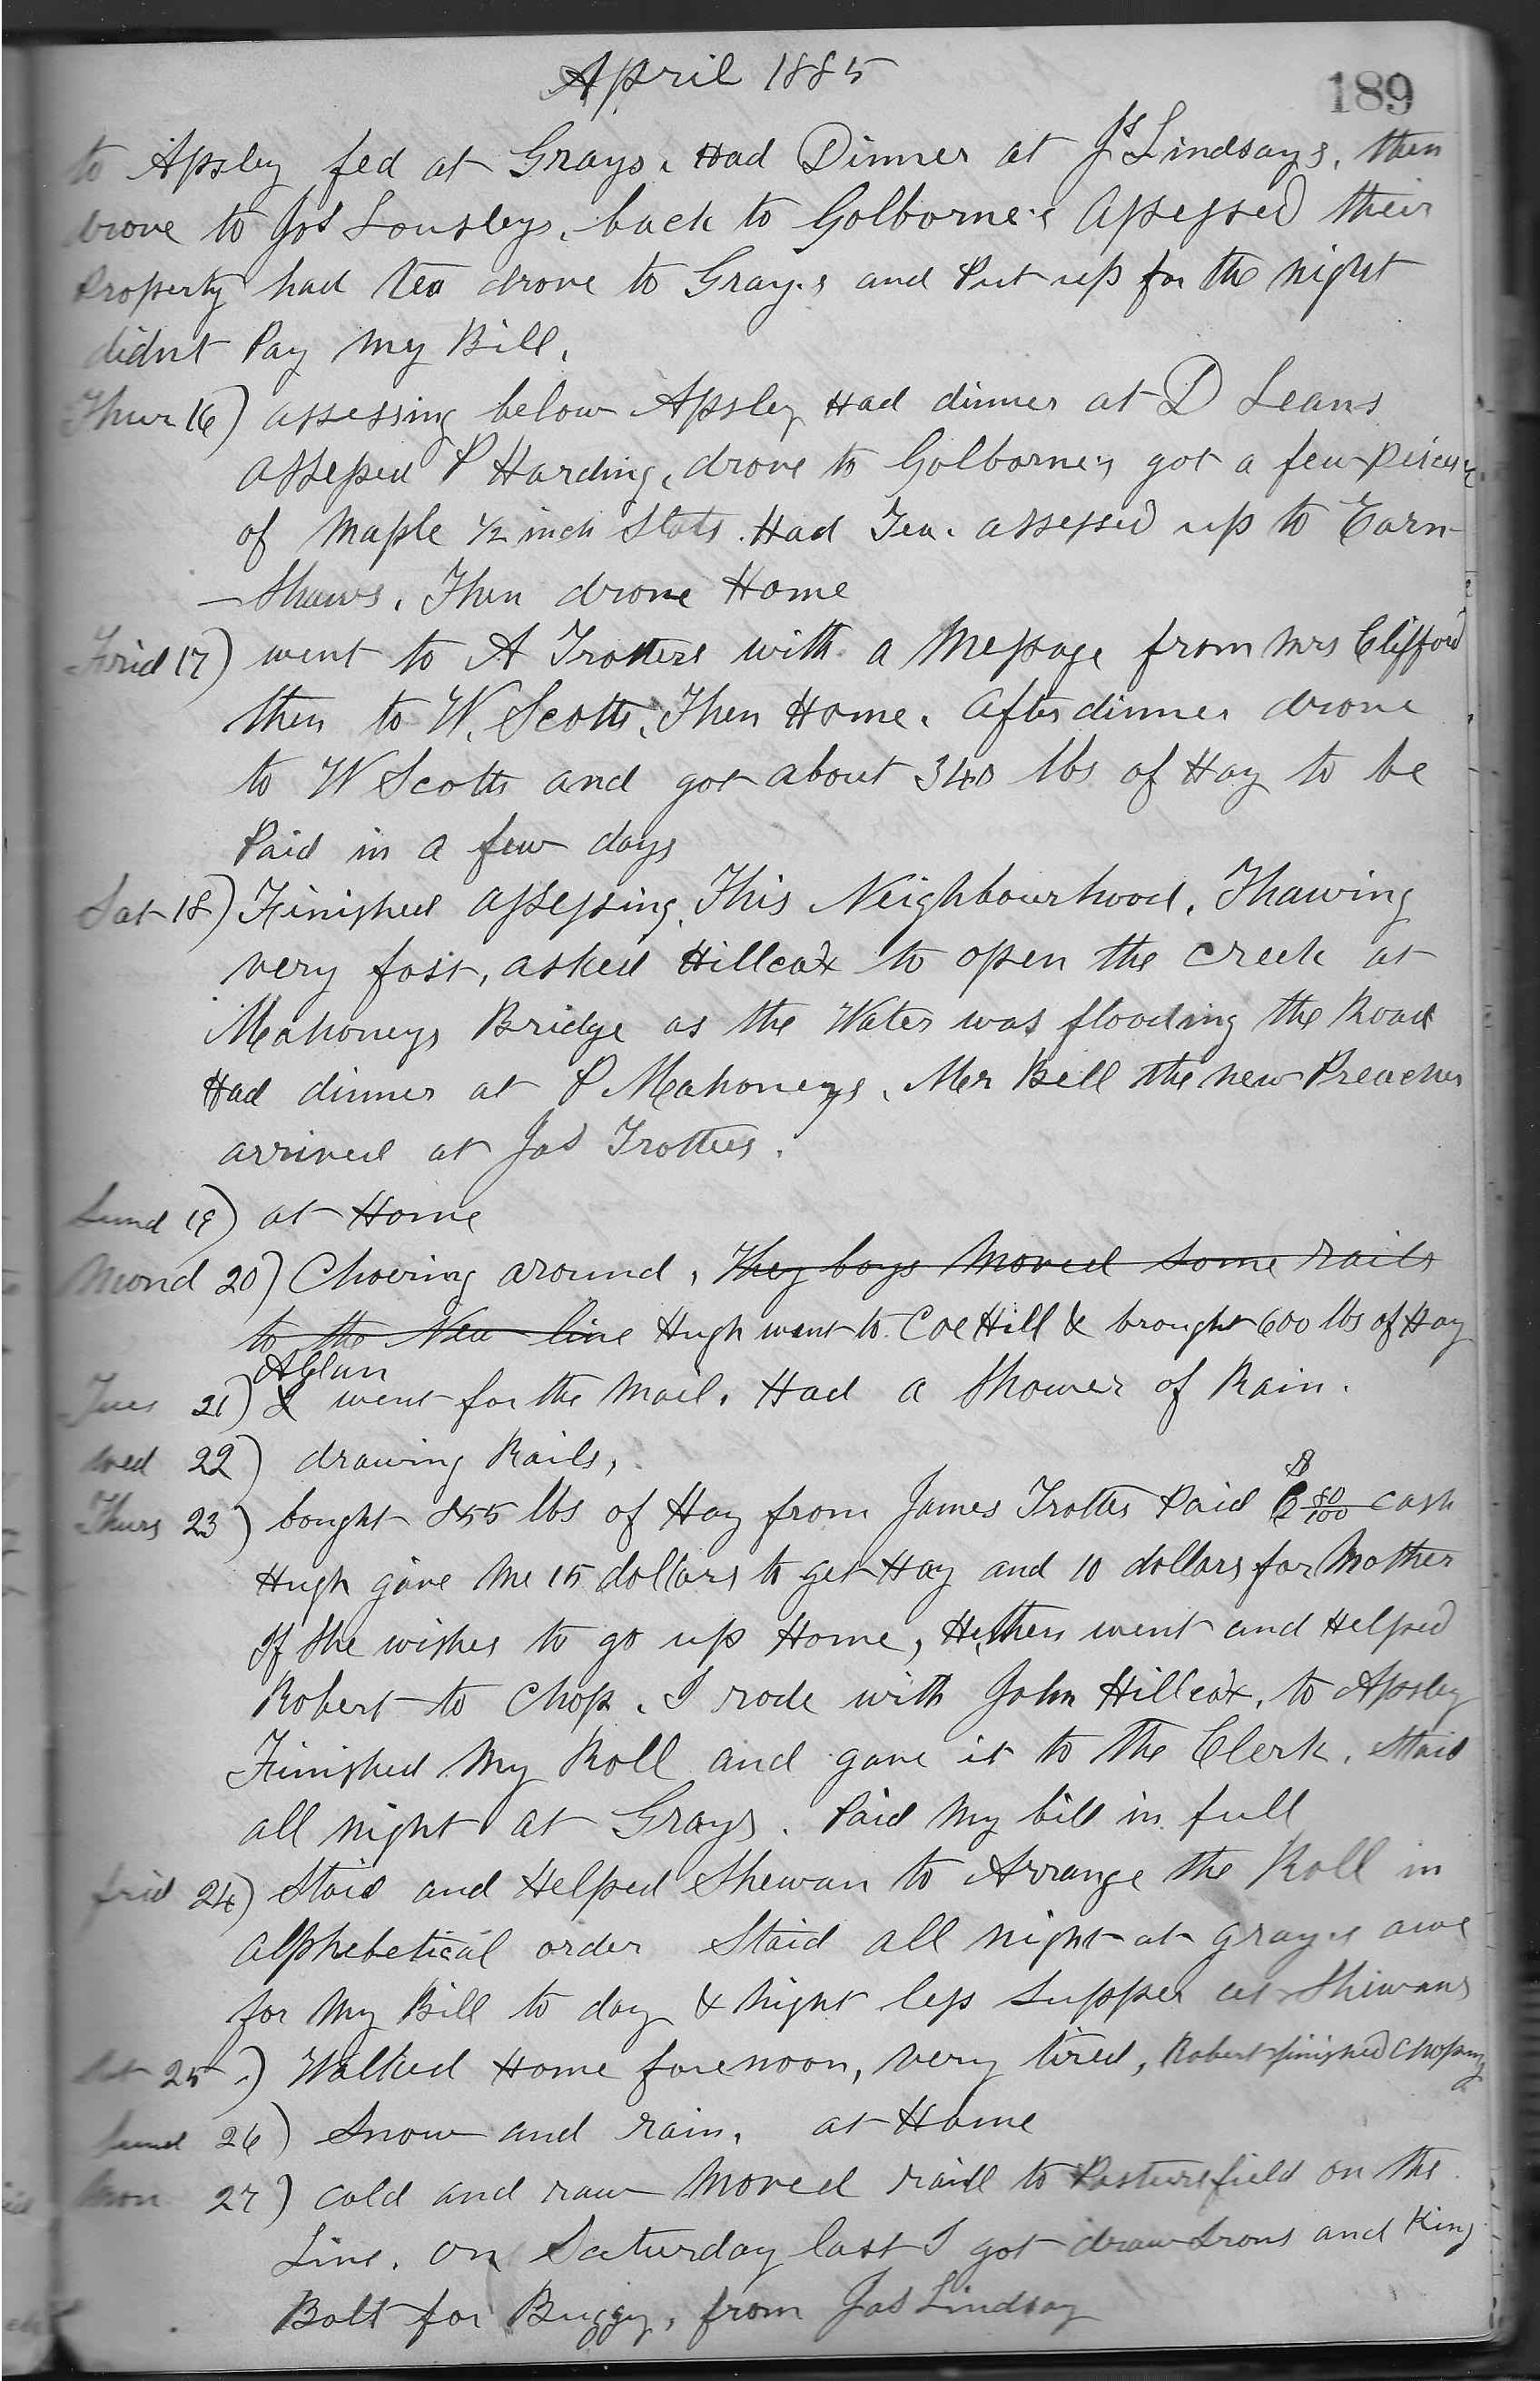 April 1885
189
to Apsley fed at Grays. Had Dinner at Js Lindsays, then
drove to Jos Lonsleys, back to Golborne's assessed their
Property had tea drove to Gray's and Put up for the night
didnt Pay my Bill.
Thur 16) assessing below Apsley Had dinner at D Leans
assessed P Harding, drove to Golborneys got a few pieces
of Maple 1/2 inch Slats. Had Tea. assessed up to Earn-
-Shaws. Then drove Home
Frid 17) went to A Trotters with a Message from Mrs Clifford
then to W. Scotts, Then Home. After dinner drove
to W Scotts and got about 340 lbs of Hay to be
Paid in a few days
Sat 18) Finished assessing This Neighbourhood, Thawing
very fast, asked Hillcox to open the creek at
Mahoneys Bridge as the Water was flooding the Road
Had dinner at P Mahoneys. Mr Bell the new Preacher
arrived at Jas Trotters.
Sund 19) at Home
Mond 20) Choering around, They boys Moved some rails
to the New line Hugh went to Coe Hill & brought 600 lbs of Hay
Allan
Tues 21) I went for the Mail. Had a Shower of Rain.
wed 22) drawing Rails,
Thurs 23) bought 855 lbs of Hay from James Trotter Paid $6 80/100 cash
Hugh gave Me 15 dollars to get Hay and 10 dollars for Mother
If She wishes to go up Home, He then went and Helped
Robert to Chop. I rode with John Hillcox, to Apsley
Finished My Roll and gave it to the Clerk. Staid
all night at Grays. Paid My bill in full
frid 24) Staid and Helped Shewan to Arrange the Roll in
alphebetical order Staid all night at grays owe
for My Bill to day & night less Supper at Shewans
Sat 25.) Walked Home forenoon, very tired, Robert finished Choping
Sund 26) Snow and rain. at Home
Mon 27) cold and raw Moved raill to Pasturefield on the
Line. on Saturday last I got draw Irons and King
Bolt for Buggy, from Jas Lindsay